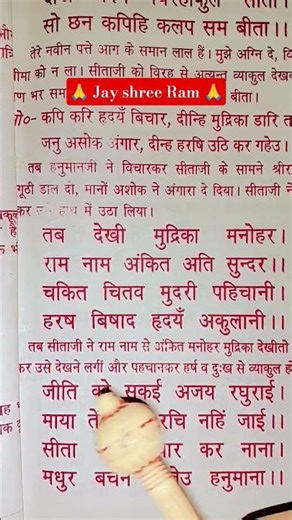 सो छन कपिहि कलप सम बीता।।
तेरे नवीन पत्ते आग के समान लाल हैं। मुझे अग्नि दे,
सीमा को न ला। सीताजी को विरह से अत्यन्त व्याकुल देखक
क्षण भर सम बीता।
🙏 Jay shree Ram 🙏
दो०- कपि करि हृदयँ बिचार, दीन्हि मुद्रिका डारि त
जनु असोक अंगार, दीन्ह हरषि उठि कर गहेउ।।
तब हनुमानजी ने विचारकर सीताजी के सामने श्रीर
गूठी डाल दी, मानों अशोक ने अंगारा दे दिया। सीताजी ने
कर हाथ में उठा लिया।
तब देखी मुद्रिका मनोहर।
राम नाम अंकित अति सुन्दर।।
चकित चितव मुदरी पहिचानी।
हरष बिषाद हृदयँ अकुलानी।।
तब सीताजी ने राम नाम से अंकित मनोहर मुद्रिका देखी तो
कर उसे देखने लगीं और पहचानकर हर्ष व दुःख से व्याकुल हो
जीति को सकई अजय रघुराई।
माया रचि नहिं जाई।।
सीता कर नाना।
मधुर बचन हनुमाना।।